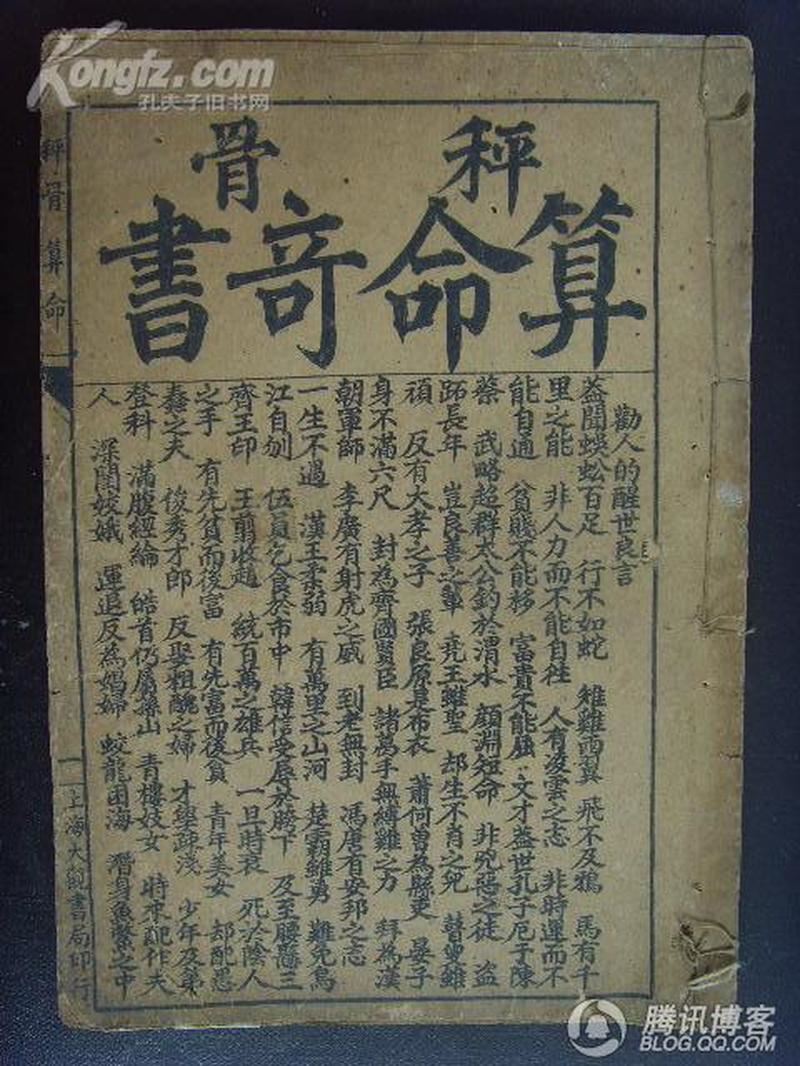 Kongfz.com
孔夫子旧书网
秤骨
算命竒書
勸人的醒世良言
蓋聞蜈蚣百足 行不如蛇 雉雞两翼 飛不及鴉 馬有千
里之能 非人力而不能自往 人有凌雲之志 非時運而不
能自通 貧賤不能移 富貴不能屈 文才盖世孔子厄于陳
蔡 武略超群太公釣於渭水 顔淵短命 非兇惡之徒 盗
跖長年 豈良善之輩 堯王雖聖 却生不肖之兒 瞽叟雖
頑 反有大孝之子 張良原是布衣 蕭何曽為縣吏 晏子
身不滿六尺 封為齊國賢臣 諸葛手無縛雞之力 拜為漢
朝軍師 李廣有射虎之威 到老無封 馮唐有安邦之志
一生不過 漢王柔弱 有萬里之山河 楚霸雖勇 難免烏
江自刎 伍員乞食於市中 韓信受辱於胯下 及至腰懸三
齊王印 王翦收趙 統百萬之雄兵 一旦時衰 死於陰人
之手 有先貧而後富 有先富而後貧 青年美女 却配愚
蠢之夫 俊秀才郎 反娶粗醜之婦 才學疎淺 少年及第
登科 滿腹經綸 皓首仍屬孫山 青樓妓女 時來配作夫
人 深閨姣娥 運退反為娼婦 蛟龍困海 潛身魚鱉之中
秤骨算命
一
上海大觀書局印行
腾讯博客
BLOG.QQ.COM